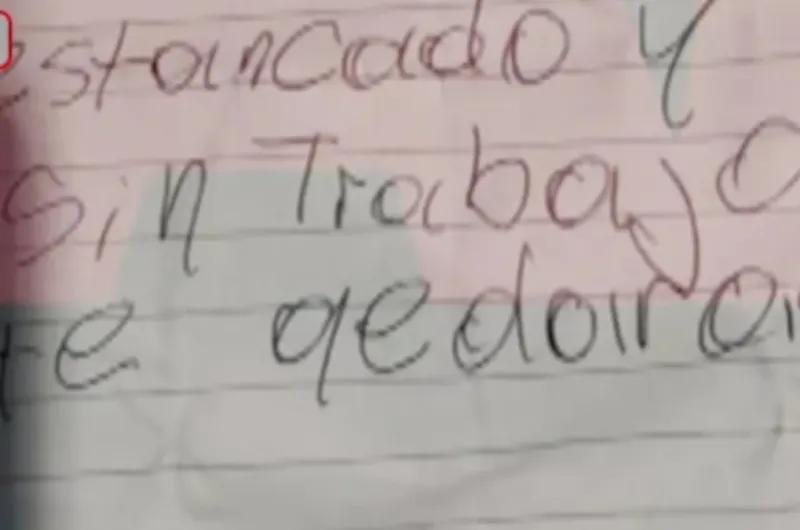 estancado y
sin Trabajo
te qedara